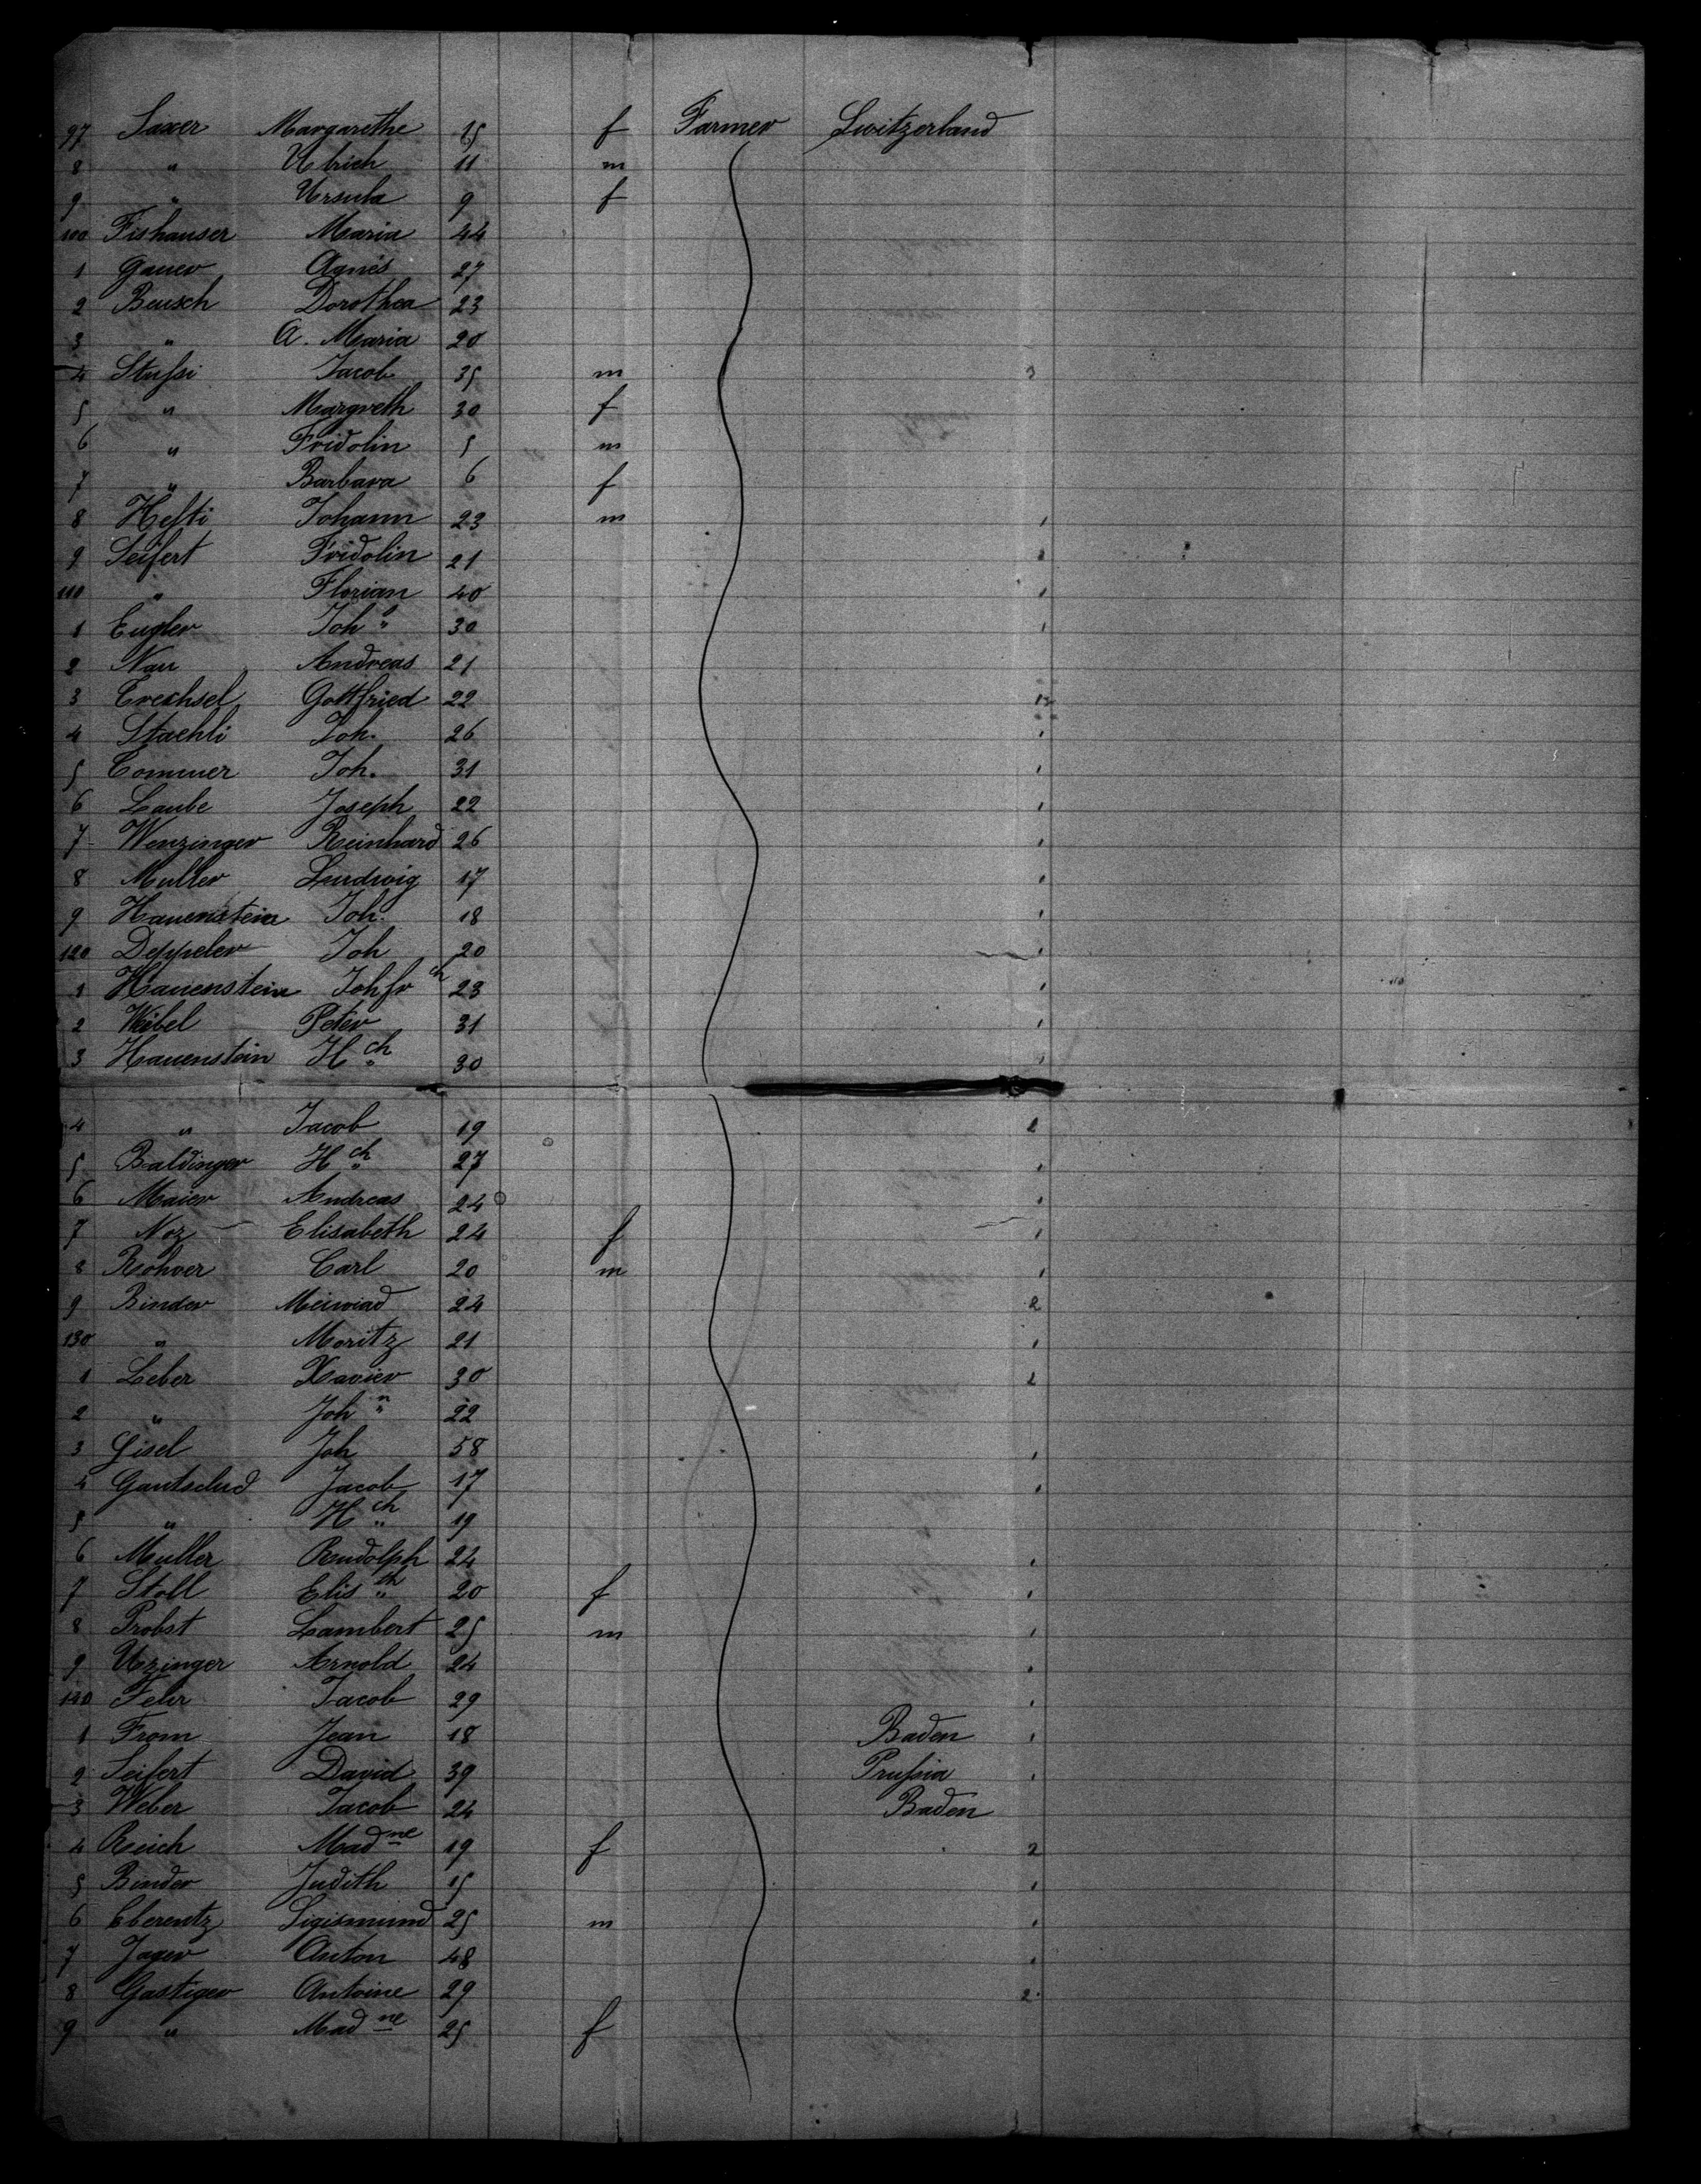 97 Saxer Margarethe 15 f Farmer Switzerland
8 " Ulrich 11 m
9 " Ursula 9 f
100 Fishauser Maria 44
1 Gauer Agnes 27
2 Beusch Dorothea 23
3 " A. Maria 20
4 Stussi Jacob 35 m 3
5 " Margreth 30 f
6 " Fridolin 5 m
7 " Barbara 6 f
8 Hefti Johann 23 m 1
9 Seifert Fridolin 21 1
110 " Florian 40 1
1 Eugler Joh" 30 1
2 Nau Andreas 21
3 Trechsel Gottfried 22
4 Staehli Joh. 26 1
5 Commer Joh. 31 1
6 Laube Joseph 22 1
7 Wenzinger Reinhard 26 1
8 Muller Ludwig 17 1
9 Hauenstein Joh. 18 1
120 Deppeler Joh 20 1
1 Hauenstein Joh fr ch 23 1
2 Weibel Peter 31 1
3 Hauenstein Hch 30 1
4 " Jacob 19 2
5 Baldinger Hch 27 1
6 Maier Andreas 24 1
7 Noz Elisabeth 24 f 1
8 Rohrer Carl 20 m 1
9 Binder Meinrad 24 2
130 " Moritz 21 1
1 Leber Xavier 30 2
2 " Joh n 22
3 Gisel Joh 58 1
4 Gautschd Jacob 17 1
5 " Hch 19
6 Muller Rudolph 24 1
7 Stoll Elisth 20 f 1
8 Probst Lambert 25 m 1
9 Uzinger Arnold 24 1
140 Fehr Jacob 29 1
1 From Jean 18 Baden 1
2 Seifert David 39 Prussia 1
3 Weber Jacob 24 Baden
4 Reich Madne 19 f 2
5 Binder Judith 15 1
6 Eberentz Sigismund 25 m 1
7 Jager Anton 48 1
8 Gastiger Antoine 29 2
9 " Madne 25 f